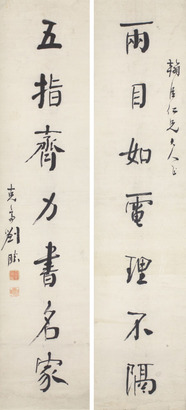 翰屋仁兄大人
兩目如電理不隔
五指齊力書名家
劉